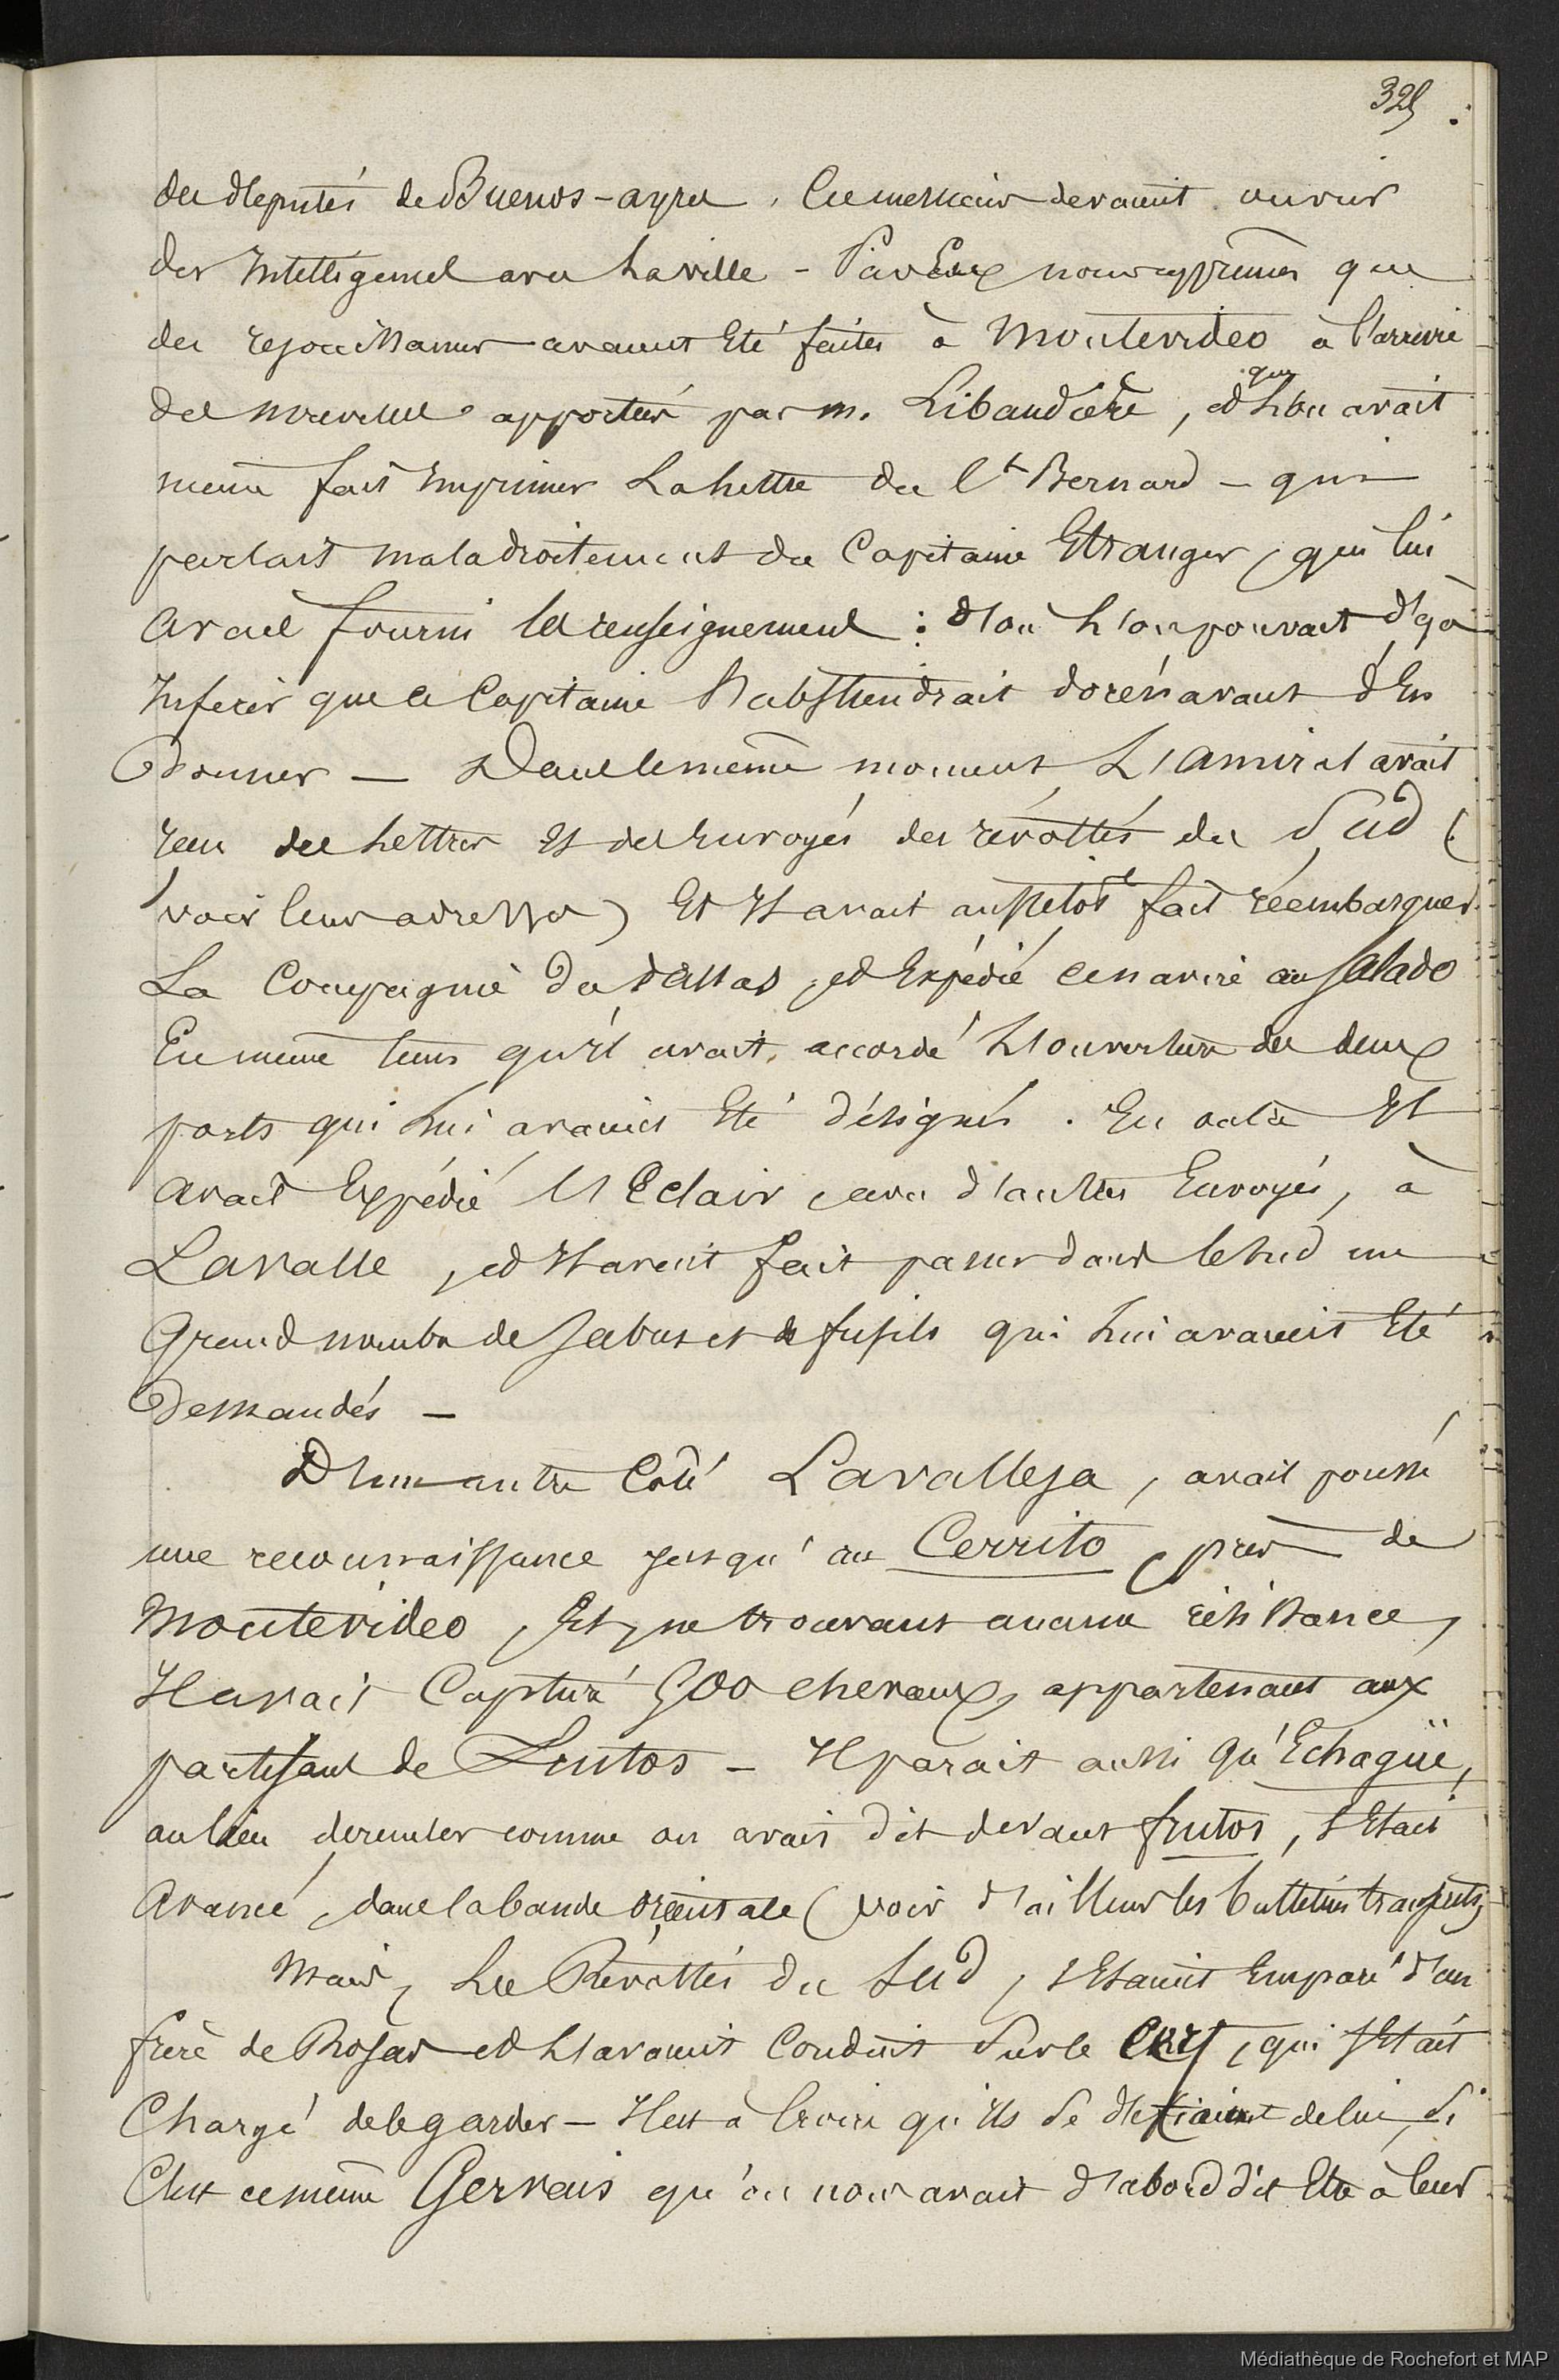 325
des députés de Buenos-ayres. Ces messieurs devaient ouvrir
des Intelligences avec la ville - Par Eux nous apprimes que
des rejouissances avaient Eté faites à Montevideo à l'arrivée
des nouvelles apportées par m. Libaudière, et que l'on avait
même fait Imprimer La lettre du Ct Bernard - qui
parlait maladroitement du Capitaine Etranger, qui lui
avait fourni les renseignements : d'où L'on pouvait déjà
Inférer que ce Capitaine S'abstiendrait dorénavant d'En
Donner — Dans le même moment L'amiral avait
recu des Lettres Et des Envoyés des révoltés du Sud (
voir leur adresse) Et Il avait aussitôt fait réembarquer
La Compagnie du Dassas, et Expédié ce navire au Salado
En même tems qu'il avait accordé L'ouverture des deux
ports qui Lui avaient Eté désignés. En outre Il
avait Expédié L'Eclair, avec d'autres Envoyés, à
Lavalle, et Il avait fait passer dans le Sud un
Grand nombre de Sabres et de fusils qui Lui avaient Eté
Demandés —
D'un autre Côté Lavalleja, avait poussé
une reconnaissance jusqu'au Cerrito, près de
Montevideo, Et, ne trouvant aucune résistance,
Il avait Capturé 500 chevaux, appartenant aux
partisans de Frutos - Il parait aussi qu'Echagüe,
au lieu de reculer comme on avais dit devant frutos, s'Etait
Avancé, dans la bande orientale (voir d'ailleurs les bulletins transcrits)
Mais, Les Révoltés du Sud, s'Etaient Emparé d'un
frère de Rosas et L'avaient Conduit Sur le Cerf, qui s'Etait
Chargé de le garder - Il est à Croire qu'ils Se défiaient de lui, Si
C'est ce même Gervais qu'on nous avait d'abord dit Etre à leur
Médiathèque de Rochefort et MAP